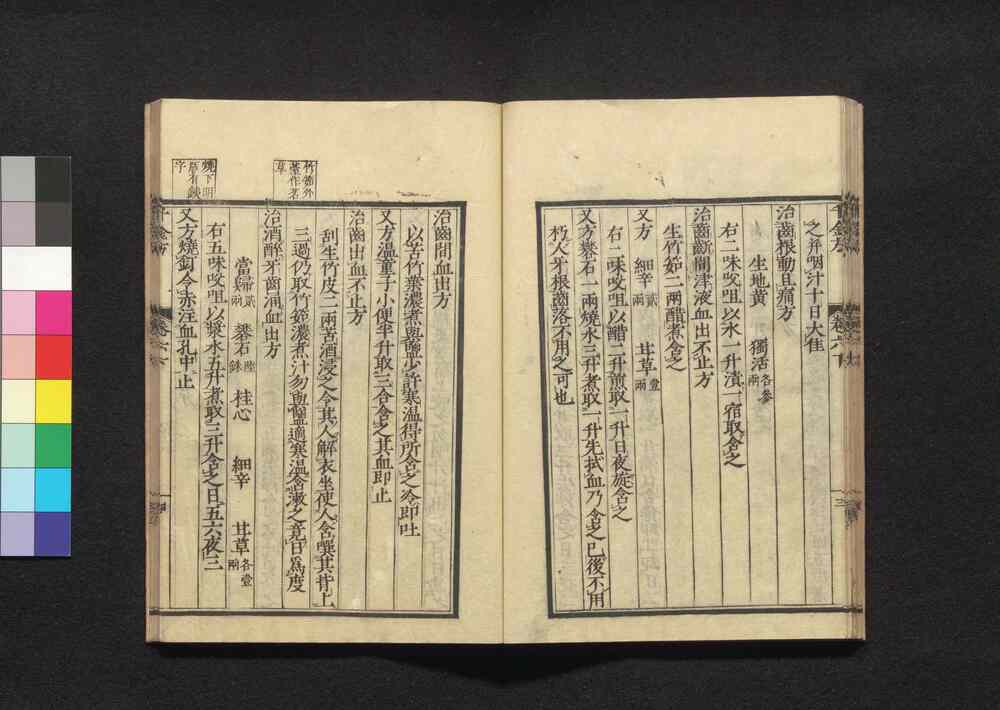 之并咽汁十日大佳
治齒根動且痛方
生地黃　獨活各參兩
右二味㕮咀以水一升漬一宿取含之
治齒齗間津液血出不止方
生竹筎二兩醋煮含之
又方　細辛貳兩　甘草壹兩
右二味㕮咀以醋二升煎取一升日夜旋含之
又方礬石一兩燒水三升煮取一升先拭血乃含之已後不用
朽人牙根齒落不用之可也
治齒間血出方
以苦竹葉濃煮與鹽少許寒溫得所含之冷即吐
又方溫童子小便半升取三合含之其血即止
治齒出血不止方
刮生竹皮二兩苦酒浸之令其人解衣坐使人含噀其背上
三過仍取竹節濃煮汁勿與鹽適寒溫含漱之竟日爲度
治酒醉牙齒涌血出方
當歸貳兩　礬石陸銖　桂心　細辛　甘草各壹兩
右五味㕮咀以漿水五升煮取三升含之日五六夜三
又方燒釘令赤注血孔中止
竹節外
臺作茗
草